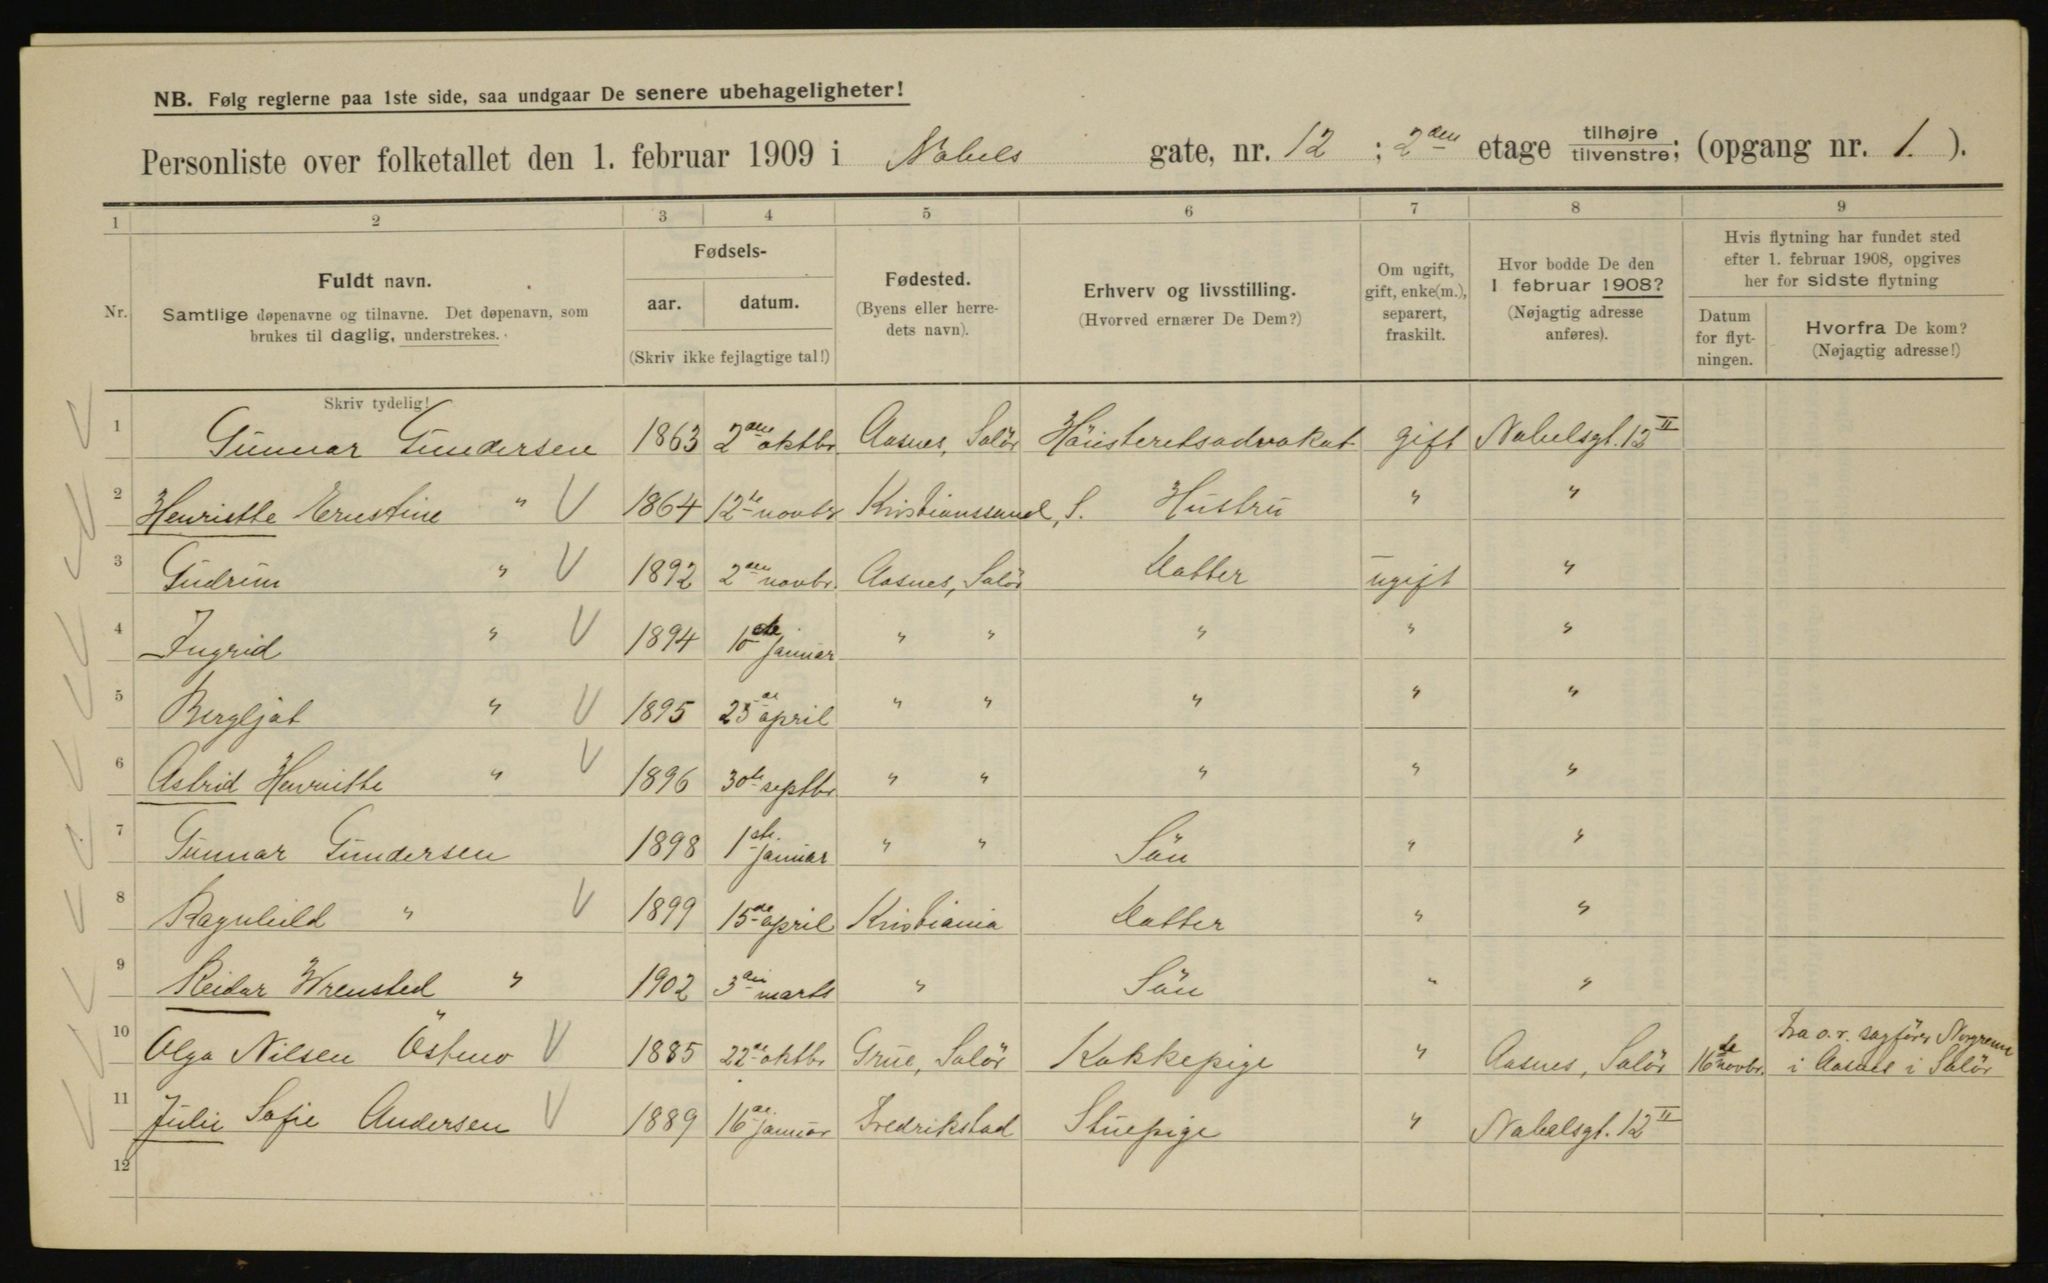 NB. Følg reglerne paa 1ste side, saa undgaar De senere ubehageligheter!
Personliste over folketallet den 1. februar 1909 i Nobels gate, nr. 12 ; 2den etage tilhøjre tilvenstre; (opgang nr. 1. ).
1 2 3 4 5 6 7 8 9
Nr.
Fuldt navn.
Samtlige døpenavne og tilnavne. Det døpenavn, som
brukes til daglig, understrekes.
Fødsels-
aar. datum.
(Skriv ikke fejlagtige tal!)
Fødested.
(Byens eller herre-
dets navn).
Erhverv og livsstilling.
(Hvorved ernærer De Dem?)
Om ugift,
gift, enke(m.),
separert,
fraskilt.
Hvor bodde De den
1 februar 1908?
(Nøjagtig adresse
anføres).
Hvis flytning har fundet sted
efter 1. februar 1908, opgives
her for sidste flytning
Datum
for flyt-
ningen.
Hvorfra De kom?
(Nøjagtig adresse!)
Skriv tydelig!
1 Gunnar Gundersen 1863 2den oktbr. Aasnes, Solör Höiesteretsadvokat gift Nobelsgt. 12 II
2 Henriette Ernestine " V 1864 12te novbr Kristianssand, S. Hustru " "
3 Gudrun " V 1892 2den novbr. Aasnes, Solör Datter ugift "
4 Ingrid " V 1894 10de januar " " " " "
5 Bergljot " V 1895 23de april " " " " "
6 Astrid Henriette " V 1896 30te septbr " " " " "
7 Gunnar Gundersen 1898 1ste januar " " Sön " "
8 Ragnhild " V 1899 15de april Kristiania Datter " "
9 Reidar Wrensted " 1902 3die marts " Sön " "
10 Olga Nilsen Östmo V 1885 22de oktbr Grue, Solör Kokkepige " Aasnes, Solör 16de novbr. Fra o.r. sagförer Norgrenn
i Aasnes i Solör
11 Julie Sofie Andersen V 1889 16de januar Fredrikstad Stuepige " Nobelsgt. 12 II
12